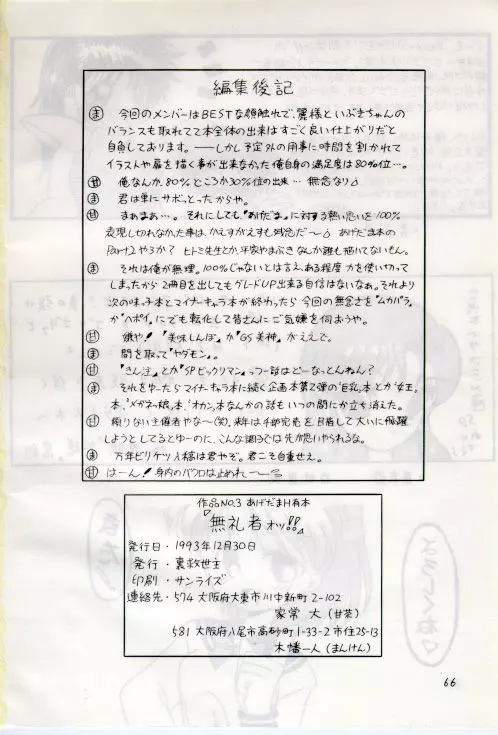 編集後記
ま 今回のメンバーはBESTな顔触れで、麗様といぶきちゃんの
バランスも取れてて本全体の出来はすごく良い仕上がりだと
自負しております。――しかし予定外の用事に時間を割かれて
イラストや扉を描く事が出来なかった俺自身の満足度は80%位…。
甘 俺なんか、80%どころか30%位の出来…無念なり
ま 君は単にサボっとったからや。
甘 まぁまぁ…。それにしても、『あげだま』に対する熱い思いを100%
表現し切れなかった事は、かえすがえすも残念だ〜 あげだま本の
Part2やろか? ヒトミ先生とか、平家やまぶきなんか誰も描いてないもん。
ま それは俺が無理。100%じゃないとは言え、ある程度力を使い切って
しまったから2冊目を出してもグレードUP出来る自信はないなぁ。それより
次の味っ子本とマイナーキャラ本が終わったら今回の無念さを『ムカパラ』
か『ハポイ』にでも転化して皆さんにご気嫌を伺おうや。
甘 嫌や!『美味しんぼ』か『GS美神』がええで。
ま 間を取って『ヤダモン』。
甘 『きん注』とか『SPビックリマン』っつー話はどーなっとんねん?
ま それをゆーたらマイナーキャラ本に続く企画本第2弾の『巨乳』本とか『女王』
本、『メガネっ娘』本、『オカン』本なんかの話もいつの間にか立ち消えた。
甘 頼りない主催者やな〜(笑)。来年は千部完売を目指して大いに飛躍
しようとしてるとゆーのに、こんな調子では先が思いやられるな。
ま 万年ビリケツ入稿は君やぞ。君こそ自重せえ。
甘 はーん! 身内のバクロは止めれ〜
作品NO.3 あげだまH有本
『無礼者オッ!!』
発行日・1993年12月30日
発行・裏救世主
印刷・サンライズ
連絡先・574 大阪府大東市川中新町2-102
家常 大(甘茶)
581 大阪府八尾市高砂町1-33-2市住25-13
木幡一人(まんけん)
66